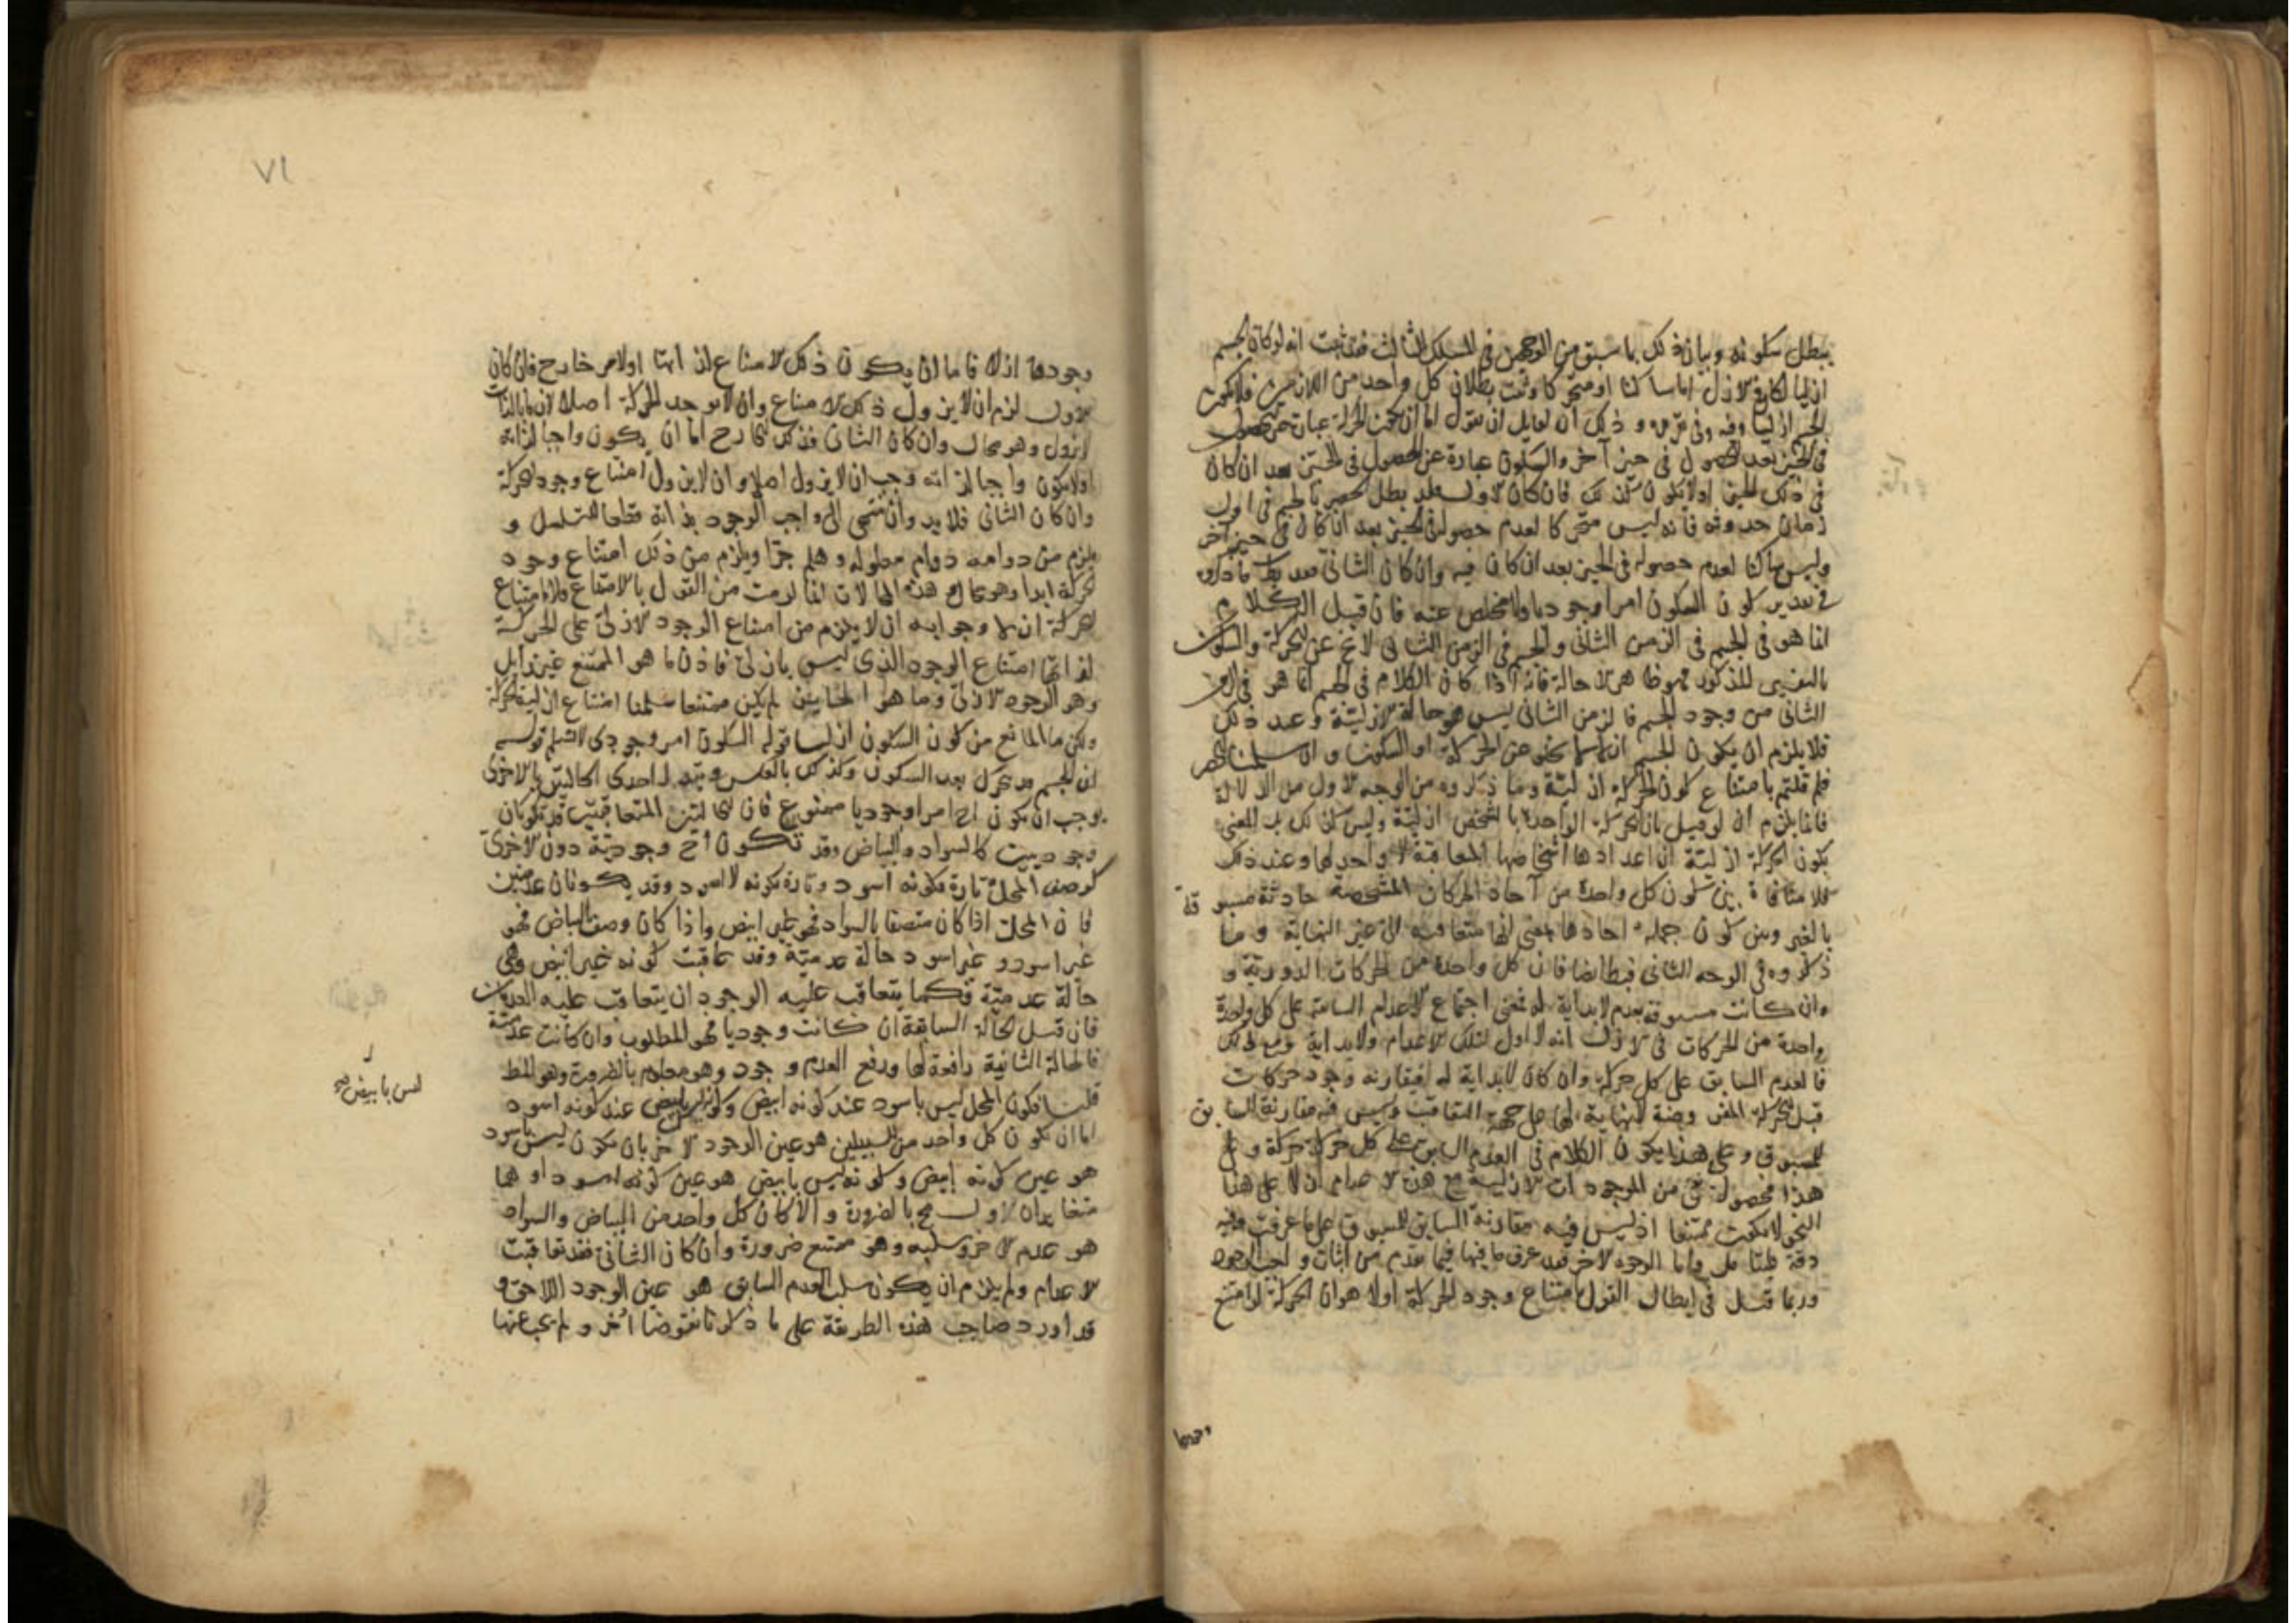 يبطل سكونه وبيان ذلك بما سبق من الوجهين في المسلك الثالث فقد ثبت انه لو كان الجسم
ازليا لكان في الازل اما ساكنا او متحركا وثبت بطلان كل واحد من اللازمين فلا يكون
الجسم ازليا وفيه وذلك ان لقايل ان يقول اما ان تكون الحركة عبارة عن الحصول
في الحيز بعد الحصول في حيز آخر والسكون عبارة عن الحصول في الحيز بعد ان كان
في ذلك الحيز او لا يكون كذلك فان كان الاول فقد بطل الحصر بالجسم في اول
زمان حدوثه فانه ليس متحركا لعدم حصوله في الحيز بعد ان كان في حيز آخر
وليس ساكنا لعدم حصوله في الحيز بعد ان كان فيه وان كان الثاني فقد بطل ما ذكروه
في تقدير كون السكون امرا وجوديا ولا مخلص عنه فان قيل الكلام
انما هو في الجسم في الزمن الثاني والجسم في الزمن الثاني لا يخ عن الحركة والسكون
بالتفسير المذكور فهو ظاهر الاحالة فانه اذا كان الكلام في الجسم انما هو في الزمن
الثاني من وجود الجسم فالزمن الثاني ليس هو حالة الازلية وعند ذلك
فلا يلزم ان يكون الجسم ازلا لا يخلو عن الحركة او السكون وان سلمنا الحصر
فلم قلتم بامتناع كون الحركة ازلية وما ذكروه من الوجه الاول من الدلالة
فانما يلزم ان لو قيل بان الحركة الواحدة بالشخص ازلية وليس كذلك بل المعنى
بكون الحركة ازلية ان اعداد اشخاصها المتعاقبة لا اول لها وعند ذلك
فلا منافاة بين كون كل واحدة من آحاد الحركات المشخصة حادثة مسبوقة
بالغير وبين كون جملة احادها بمعنى انها متعاقبة الى غير النهاية وما
ذكروه في الوجه الثاني فباطل ايضا فان كل واحدة من الحركات الدورية و
وان كانت مسبوقة بعدم لا بداية له فمعنى اجتماع الاعدام السابقة على كل واحدة
واحدة من الحركات في الازل انه لا اول لتلك الاعدام ولا بداية ومع ذلك
فالعدم السابق على كل حركة وان كان لا بداية له فيقارنه وجود حركات
قبل الحركة المفروضة لا نهاية لها على جهة التعاقب وليس فيه مقارنة السابق
للمسبوق وعلى هذا يكون الكلام في العدم السابق على كل حركة حركة وعلى
هذا فحصول شي من الموجودات الازلية مع هذه الاعدام ازلا على هذا
النحو لا يكون ممتنعا اذ ليس فيه مقارنة السابق للمسبوق على ما عرفت وفيه
دقة فليتامل واما الوجوه الاخر فقد عرف ما فيها فيما تقدم من اثبات واجب الوجود
وربما قيل في ابطال القول بامتناع وجود الحركة اولا هو ان الحركة لو امتنع
وجودها
٧١
وجودها ازلا فاما ان يكون ذلك الامتناع لذاتها او لامر خارج فان كان
الاول لزم ان لا يزول ذلك الامتناع وان لا توجد الحركة اصلا لان ما بالذات
لا يزول وهو محال وان كان الثاني فذلك الخارج اما ان يكون واجبا لذاته
او لا يكون واجبا لذاته وجب ان لا يزول اصلا وان لا يزول امتناع وجود الحركة
وان كان الثاني فلا بد وان ينتهي الى واجب الوجود بذاته قطعا للتسلسل و
يلزم من دوامه دوام معلوله وهلم جرا ويلزم من ذلك امتناع وجود
الحركة ابدا وهو محال وهذه المحالات انما لزمت من القول بالامتناع فلا امتناع
للحركة ازلا وجوابه ان لا يلزم من امتناع الوجود الازلي على الحركة
لذاتها امتناع الوجود الذي ليس بازلي فاذن ما هو الممتنع غير زايل
وهو الوجود الازلي وما هو الجايز لم يكن ممتنعا سلمنا امتناع ازلية الحركة
ولكن ما المانع من كون السكون ازليا قوله السكون امر وجودي لا نسلم قولهم
ان الجسم قد تحرك بعد السكون وكذلك بالعكس وتبدل احدى الحالتين بالاخرى
يوجب ان يكون احد امرا وجوديا ممنوع فان الحالتين المتعاقبتين قد تكونان
وجوديتين كالسواد والبياض وقد تكون احد وجودية دون الاخرى
كوصف المحل تارة بكونه اسود وتارة بكونه لا اسود وقد يكونان عدميتين
فان المحل اذا كان متصفا بالسواد فهو غير ابيض واذا كان وصف بالبياض فهو
غير اسود وغير اسود حالة عدمية وقد تعاقبت كونه غير ابيض وهي
حالة عدمية فكما يتعاقب عليه الوجودان يتعاقب عليه العدمان
فان قيل الحالة السابقة ان كانت وجوديا فهو المطلوب وان كانت عدمية
فالحالة الثانية رافعة لها ورفع العدم وجود وهو معلوم بالضرورة وهو المط
قلنا فكون المحل ليس باسود عند كونه ابيض وكونه ليس بابيض عند كونه اسود
اما ان يكون كل واحد من السلبين هو عين الوجود الاخر بان يكون ليس باسود
هو عين كونه ابيض وكونه ليس بابيض هو عين كونه اسود او هما
متغايران الاول مح بالضرورة والا كان كل واحد من البياض والسواد
هو عدم الاخر وسلبه وهو ممتنع ضرورة وان كان الثاني فقد تعاقبت
الاعدام ولم يلزم ان يكون سلب العدم السابق هو عين الوجود اللاحق و
قد اورد صاحب هذه الطريقة على ما ذكرنا نقوضا اخر ولم يجب عنها
ليس بابيض